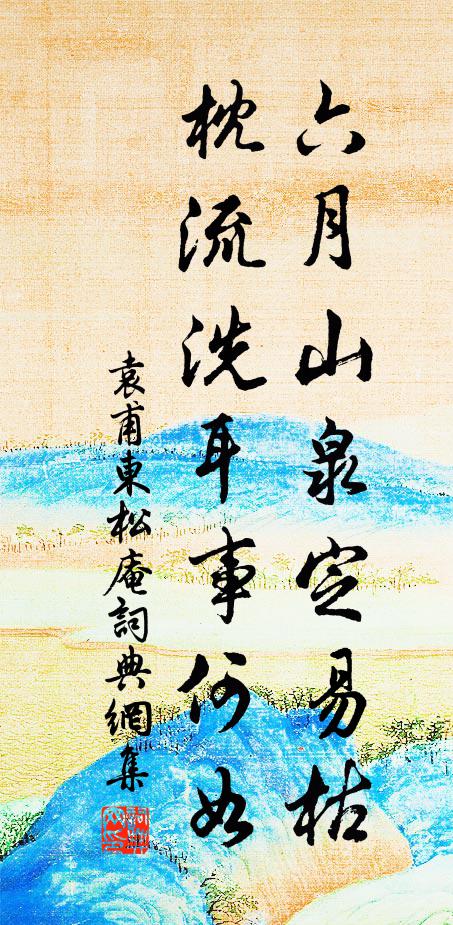 六月山泉定易枯
枕流洗耳事何如
袁甫東松庵詞典網集